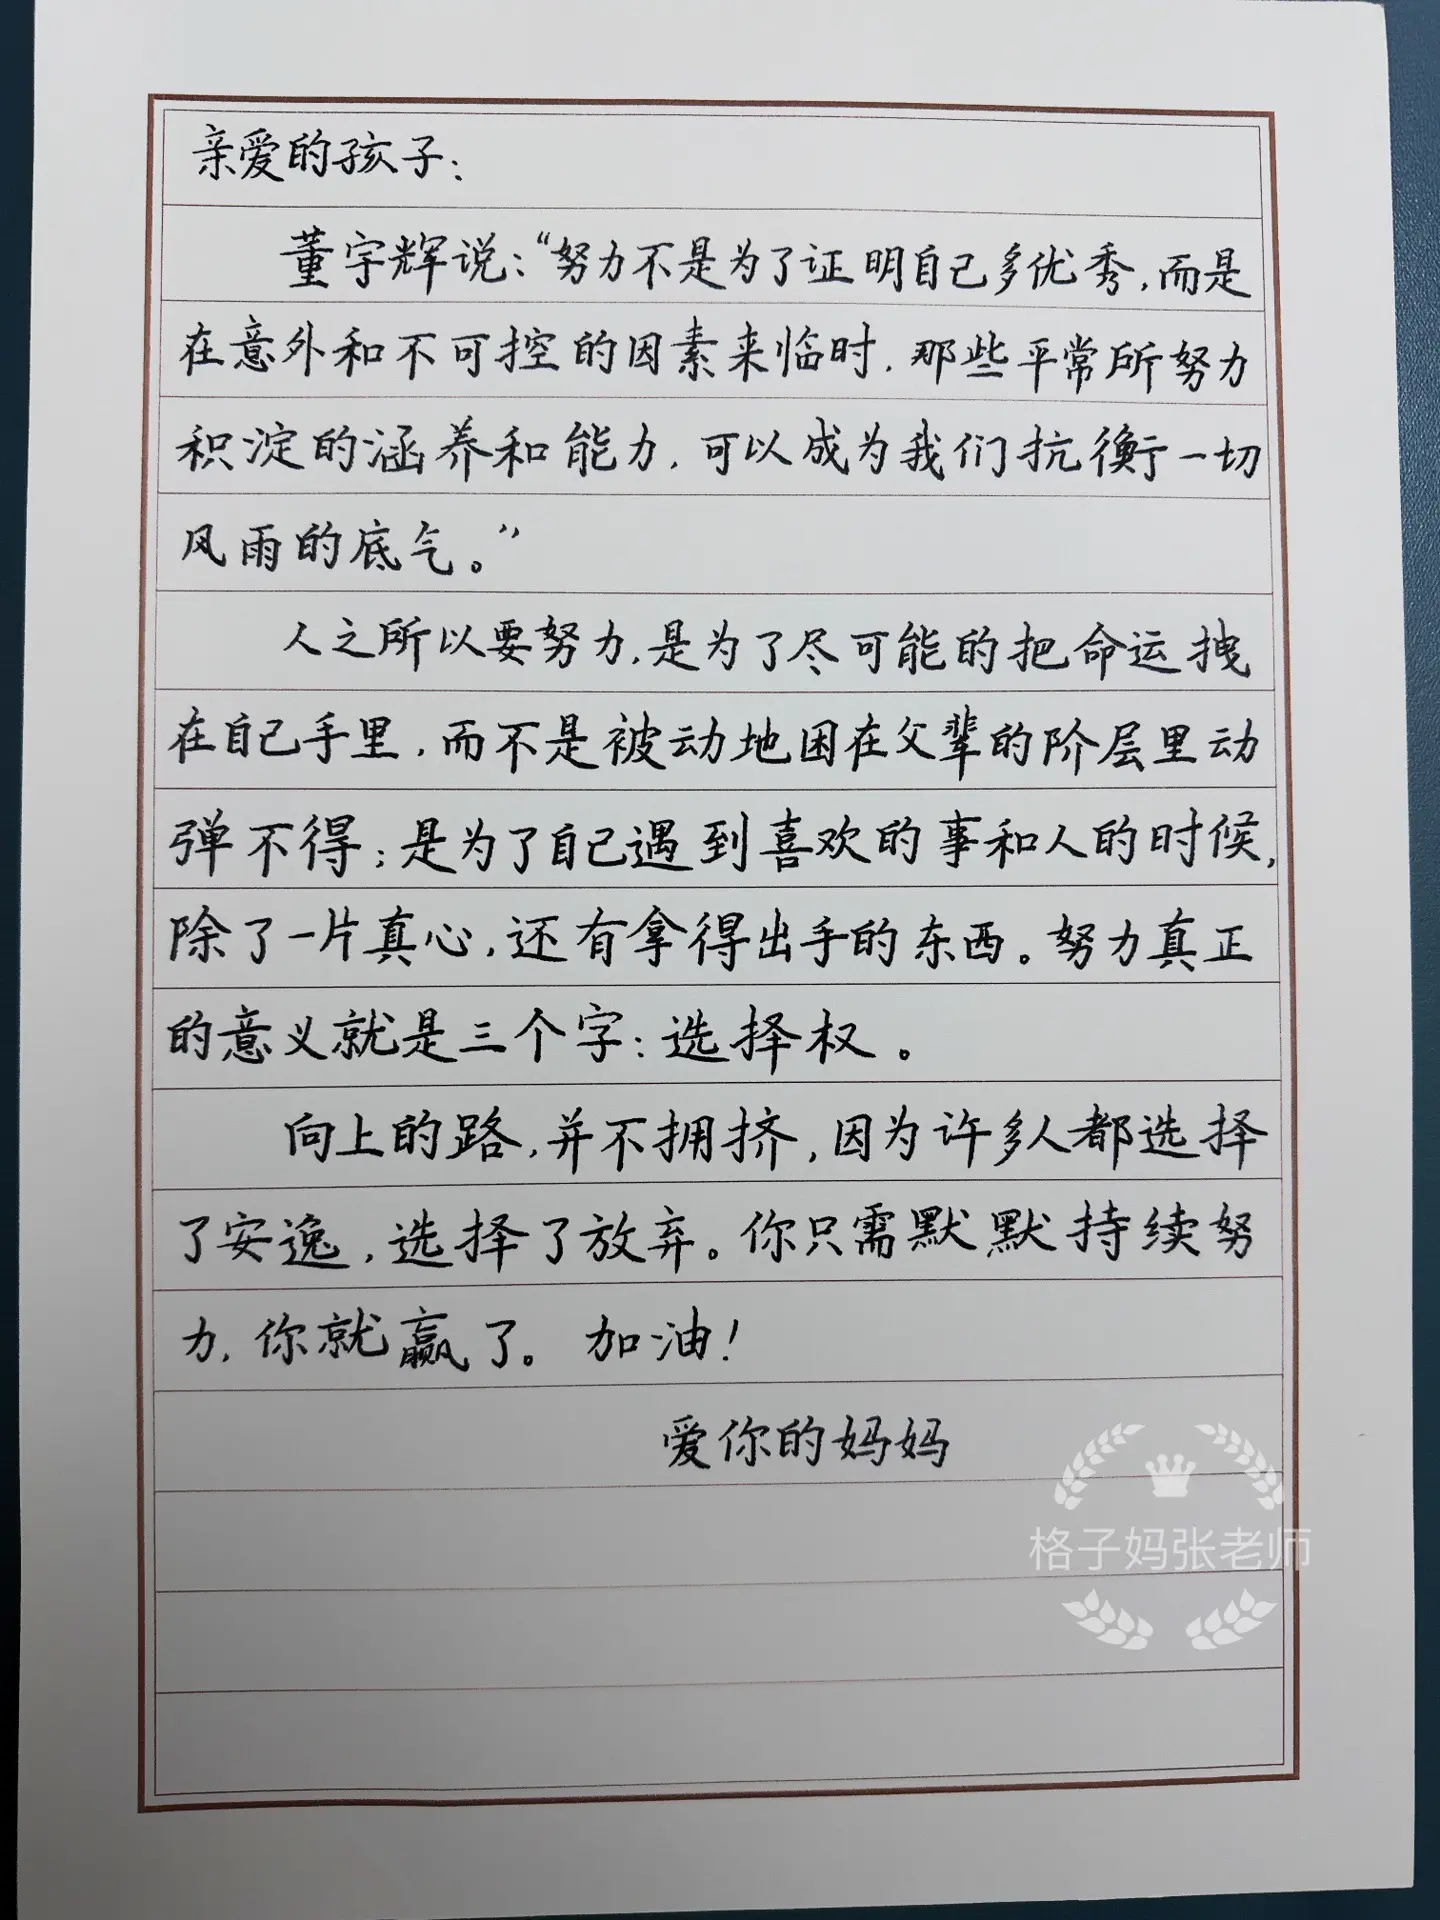 亲爱的孩子：
董宇辉说：“努力不是为了证明自己多优秀，而是
在意外和不可控的因素来临时，那些平常所努力
积淀的涵养和能力，可以成为我们抗衡一切
风雨的底气。”
人之所以要努力，是为了尽可能的把命运拽
在自己手里，而不是被动地困在父辈的阶层里动
弹不得；是为了自己遇到喜欢的事和人的时候，
除了一片真心，还有拿得出手的东西。努力真正
的意义就是三个字：选择权。
向上的路，并不拥挤，因为许多人都选择
了安逸，选择了放弃。你只需默默持续努
力，你就赢了。加油！
爱你的妈妈
格子妈张老师